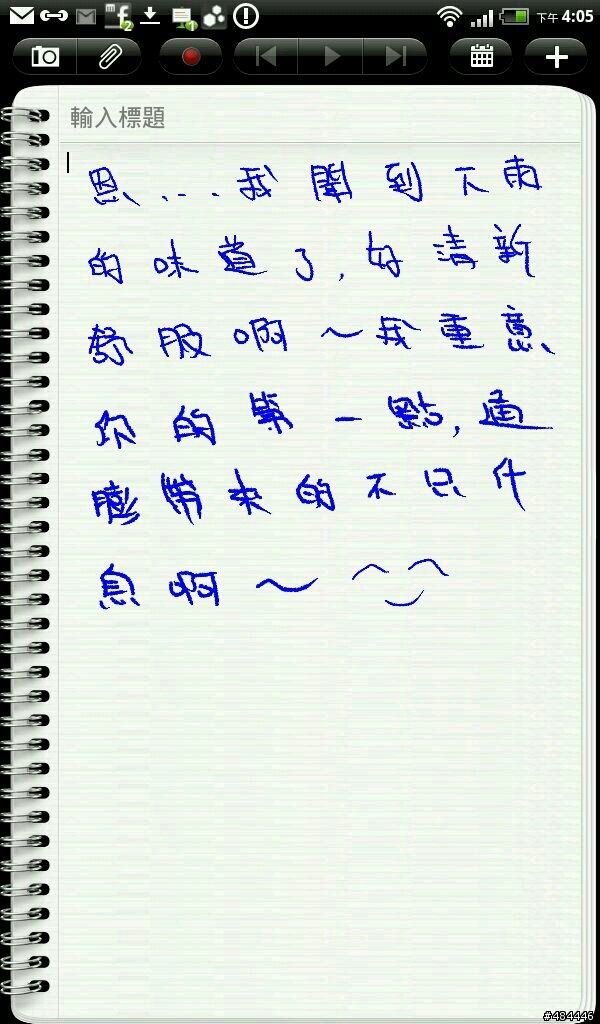 下午 4:05
輸入標題
恩...我聞到下雨
的味道了,好清新
舒服啊～我重意
你的第一點,通
膨帶來的不只什
息啊～
#484446